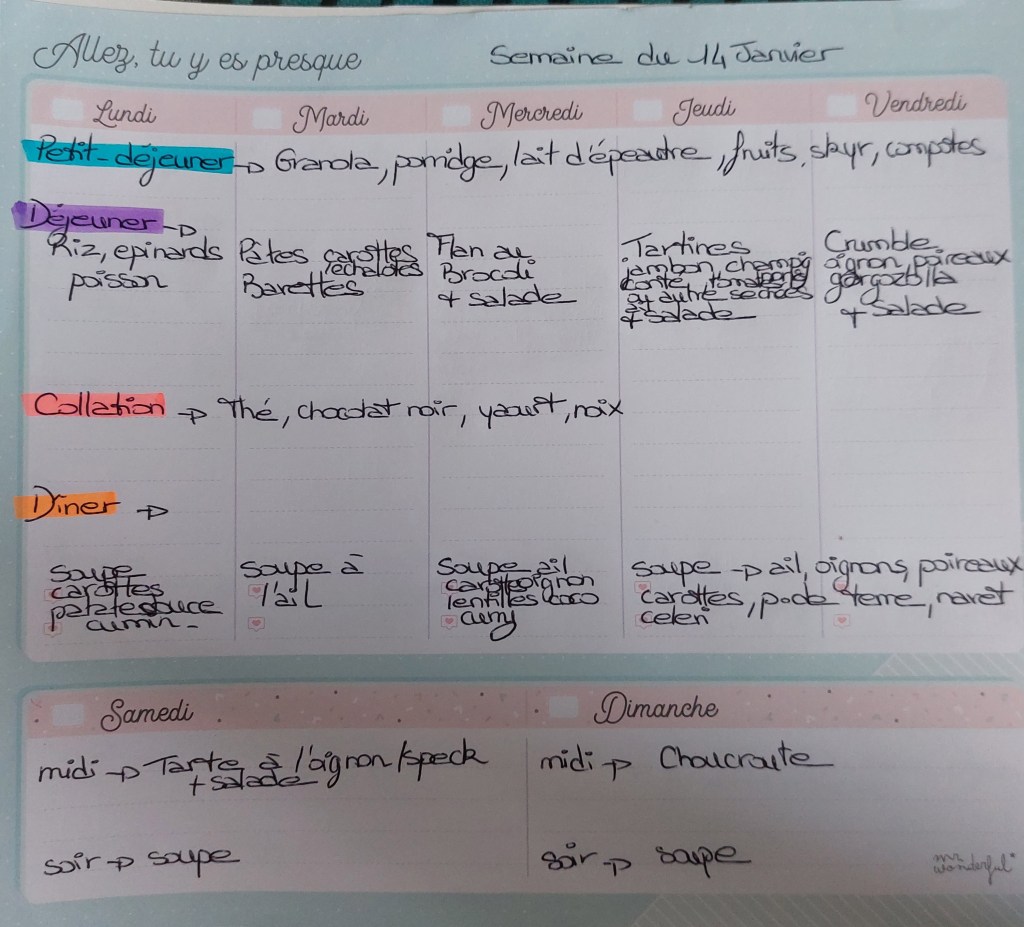 Allez, tu y es presque
Semaine du 14 Janvier
Lundi Mardi Mercredi Jeudi Vendredi
Petit-déjeuner → Granola, porridge, lait d'épeautre, fruits, skyr, compotes
Déjeuner →
Riz, epinards
poisson
Pâtes carottes
/échalotes
Barettes
Flan au
Brocoli
+ salade
Tartines
jambon, champi
comté, tomates
séchées
+ salade
Crumble
oignon, poireaux
+ salade
Collation → Thé, chocolat noir, yaourt, noix
Diner →
soupe
carottes
patate douce
cumin
soupe à
l'ail
Soupe ail
carotte oignon
lentilles coco
curry
soupe → ail, oignons, poireaux
carottes, p de terre, navet
celeri
Samedi Dimanche
midi → Tarte à l'oignon/speck
+ salade
midi → Choucroute
soir → soupe
soir → soupe
mr wonderful*